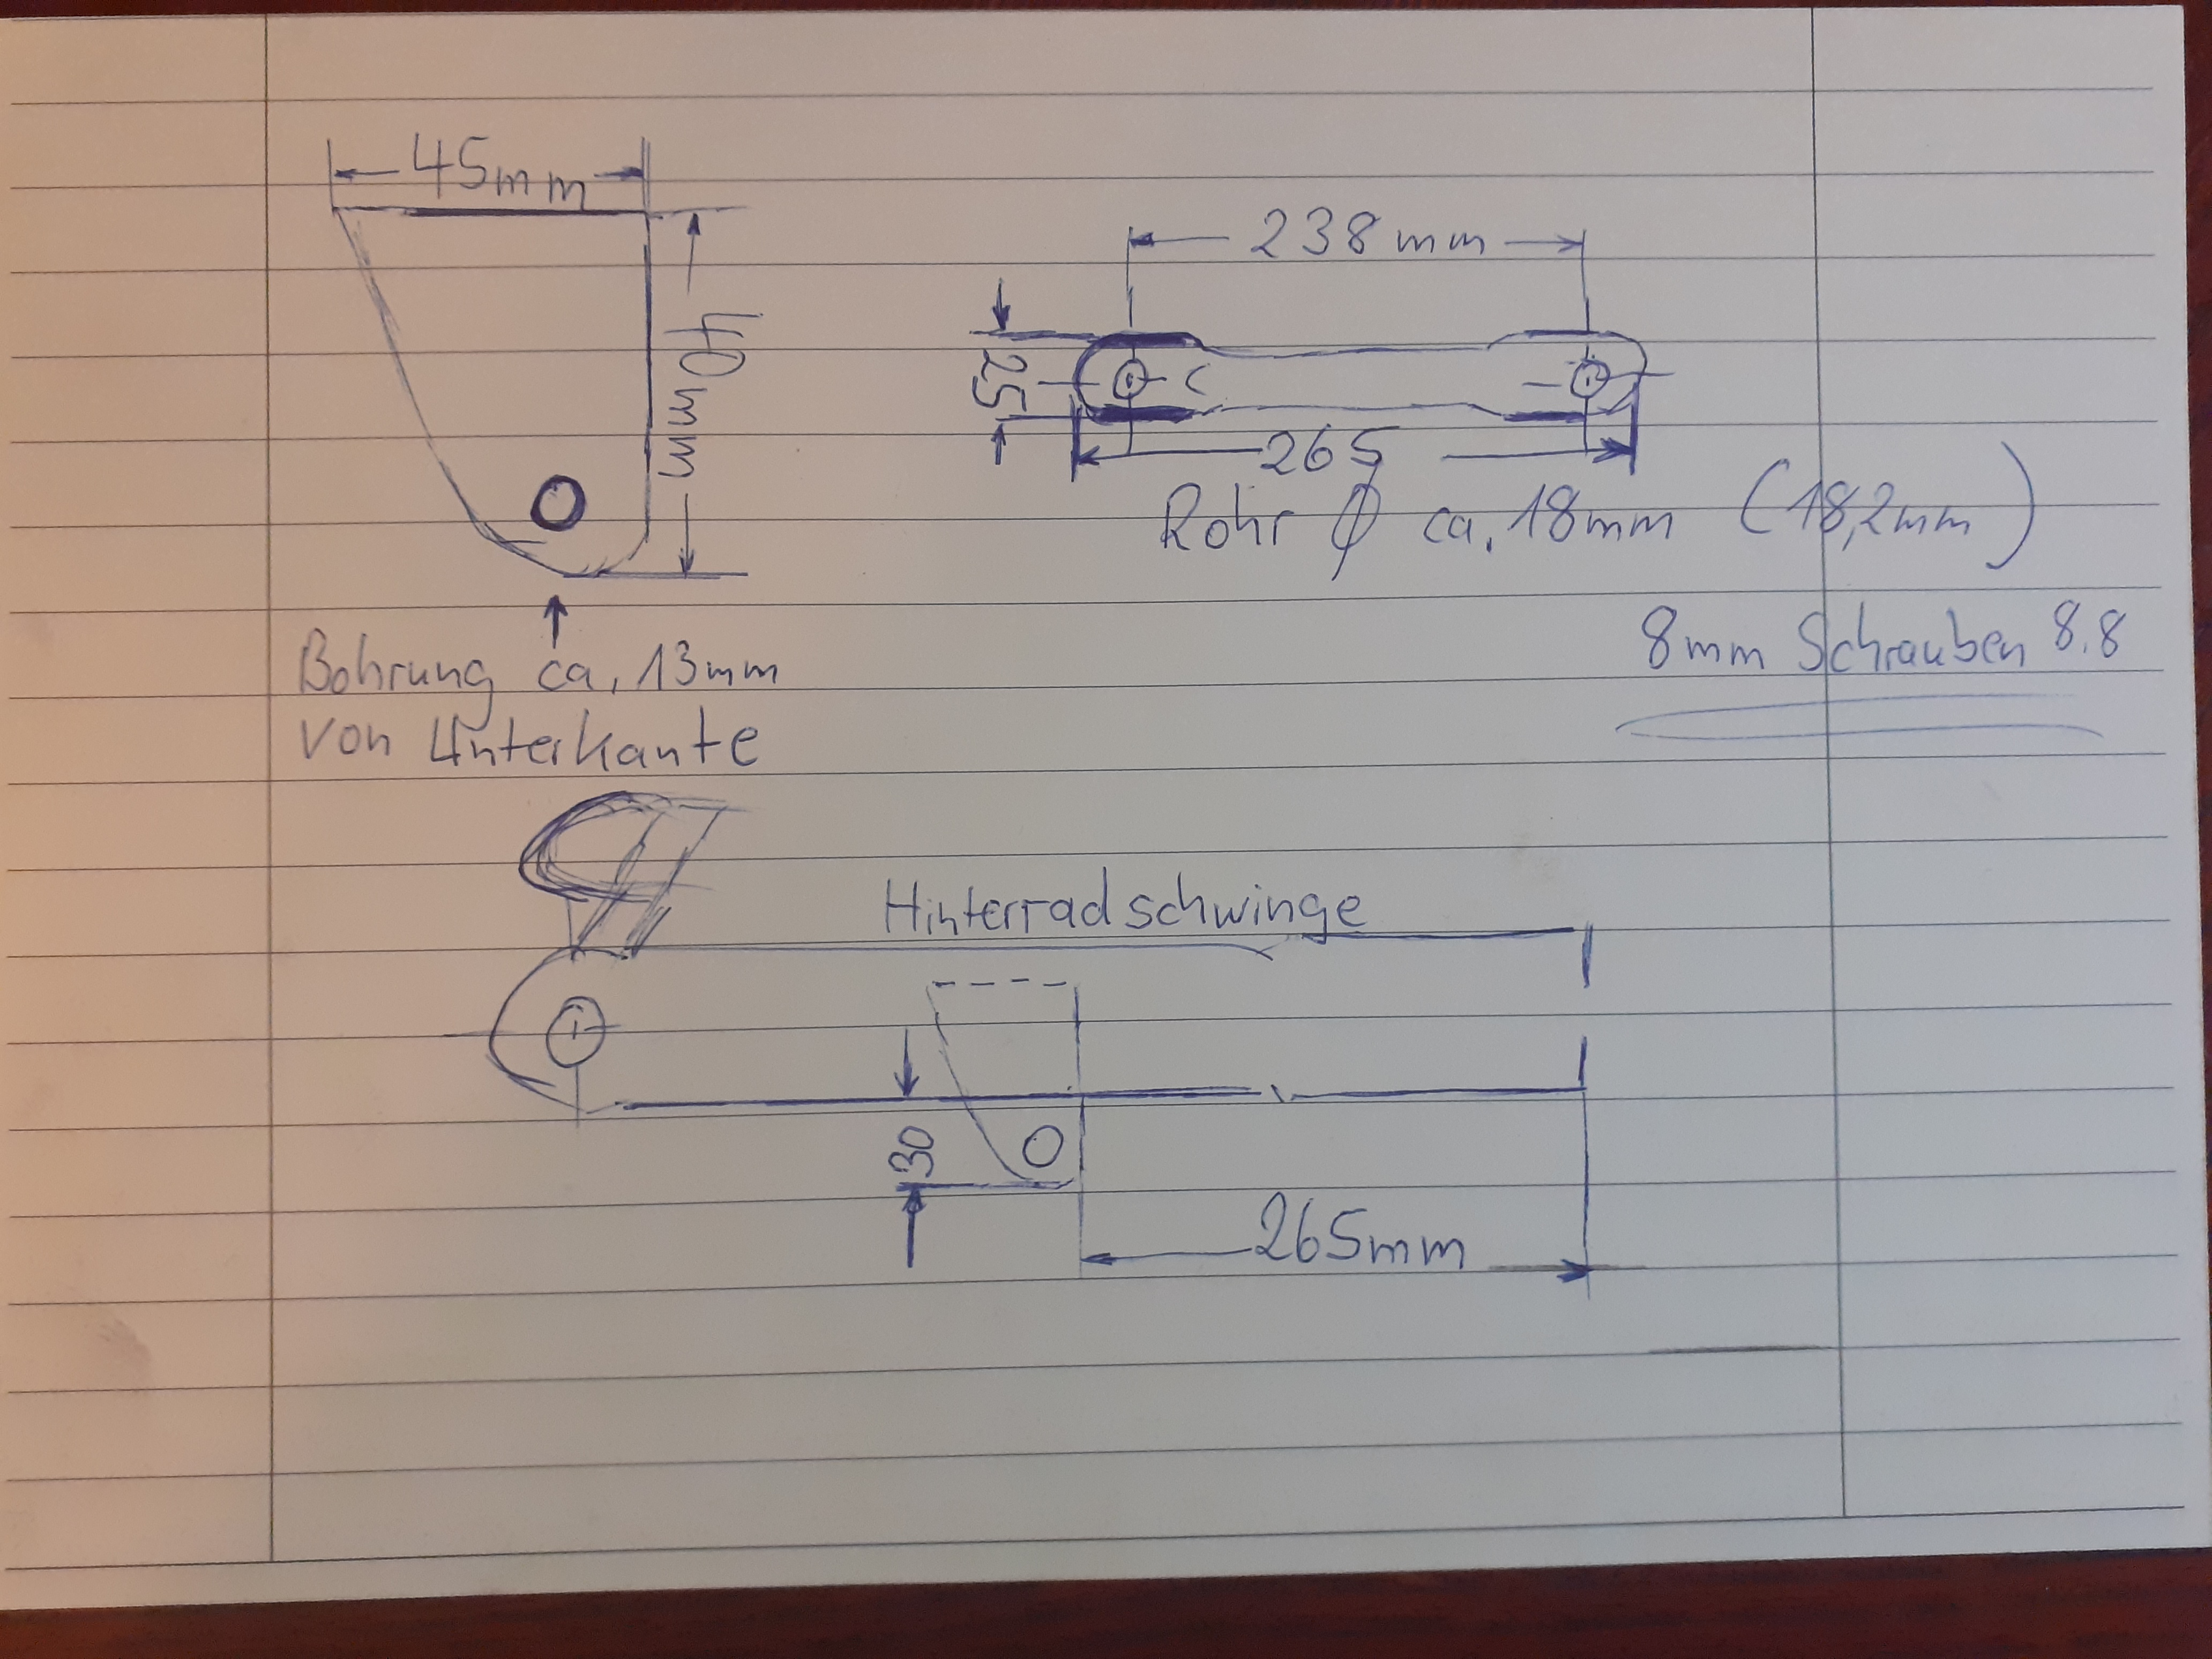 45mm
40mm
Bohrung ca. 13mm
von Unterkante
238mm
25
265
Rohr Ø ca. 18mm (18,2mm)
8mm Schrauben 8.8
Hinterradschwinge
30
265mm